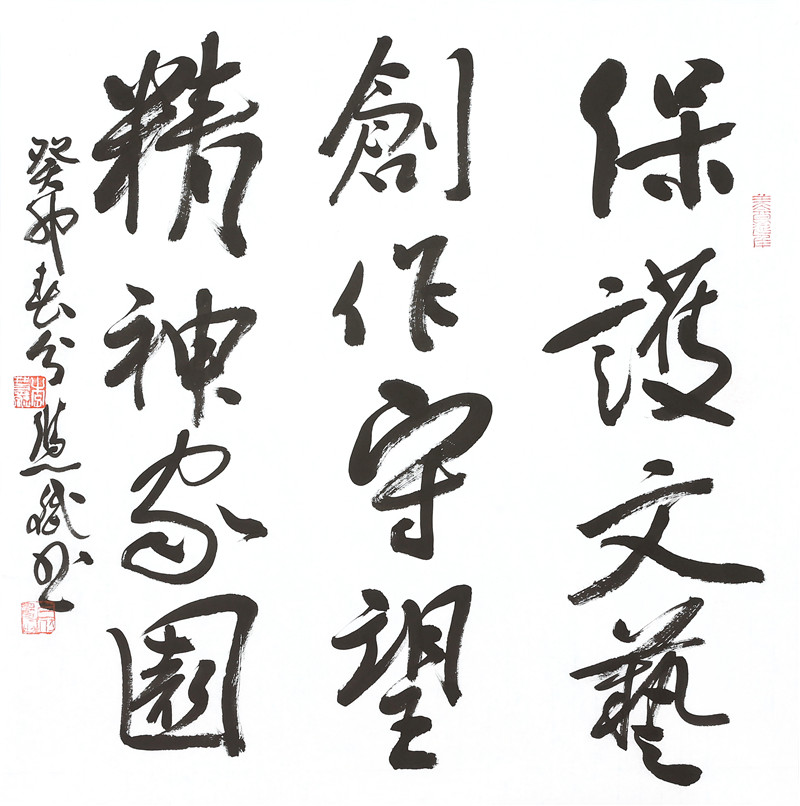 保護文藝
創作守望
精神家園
癸卯春分 斌书